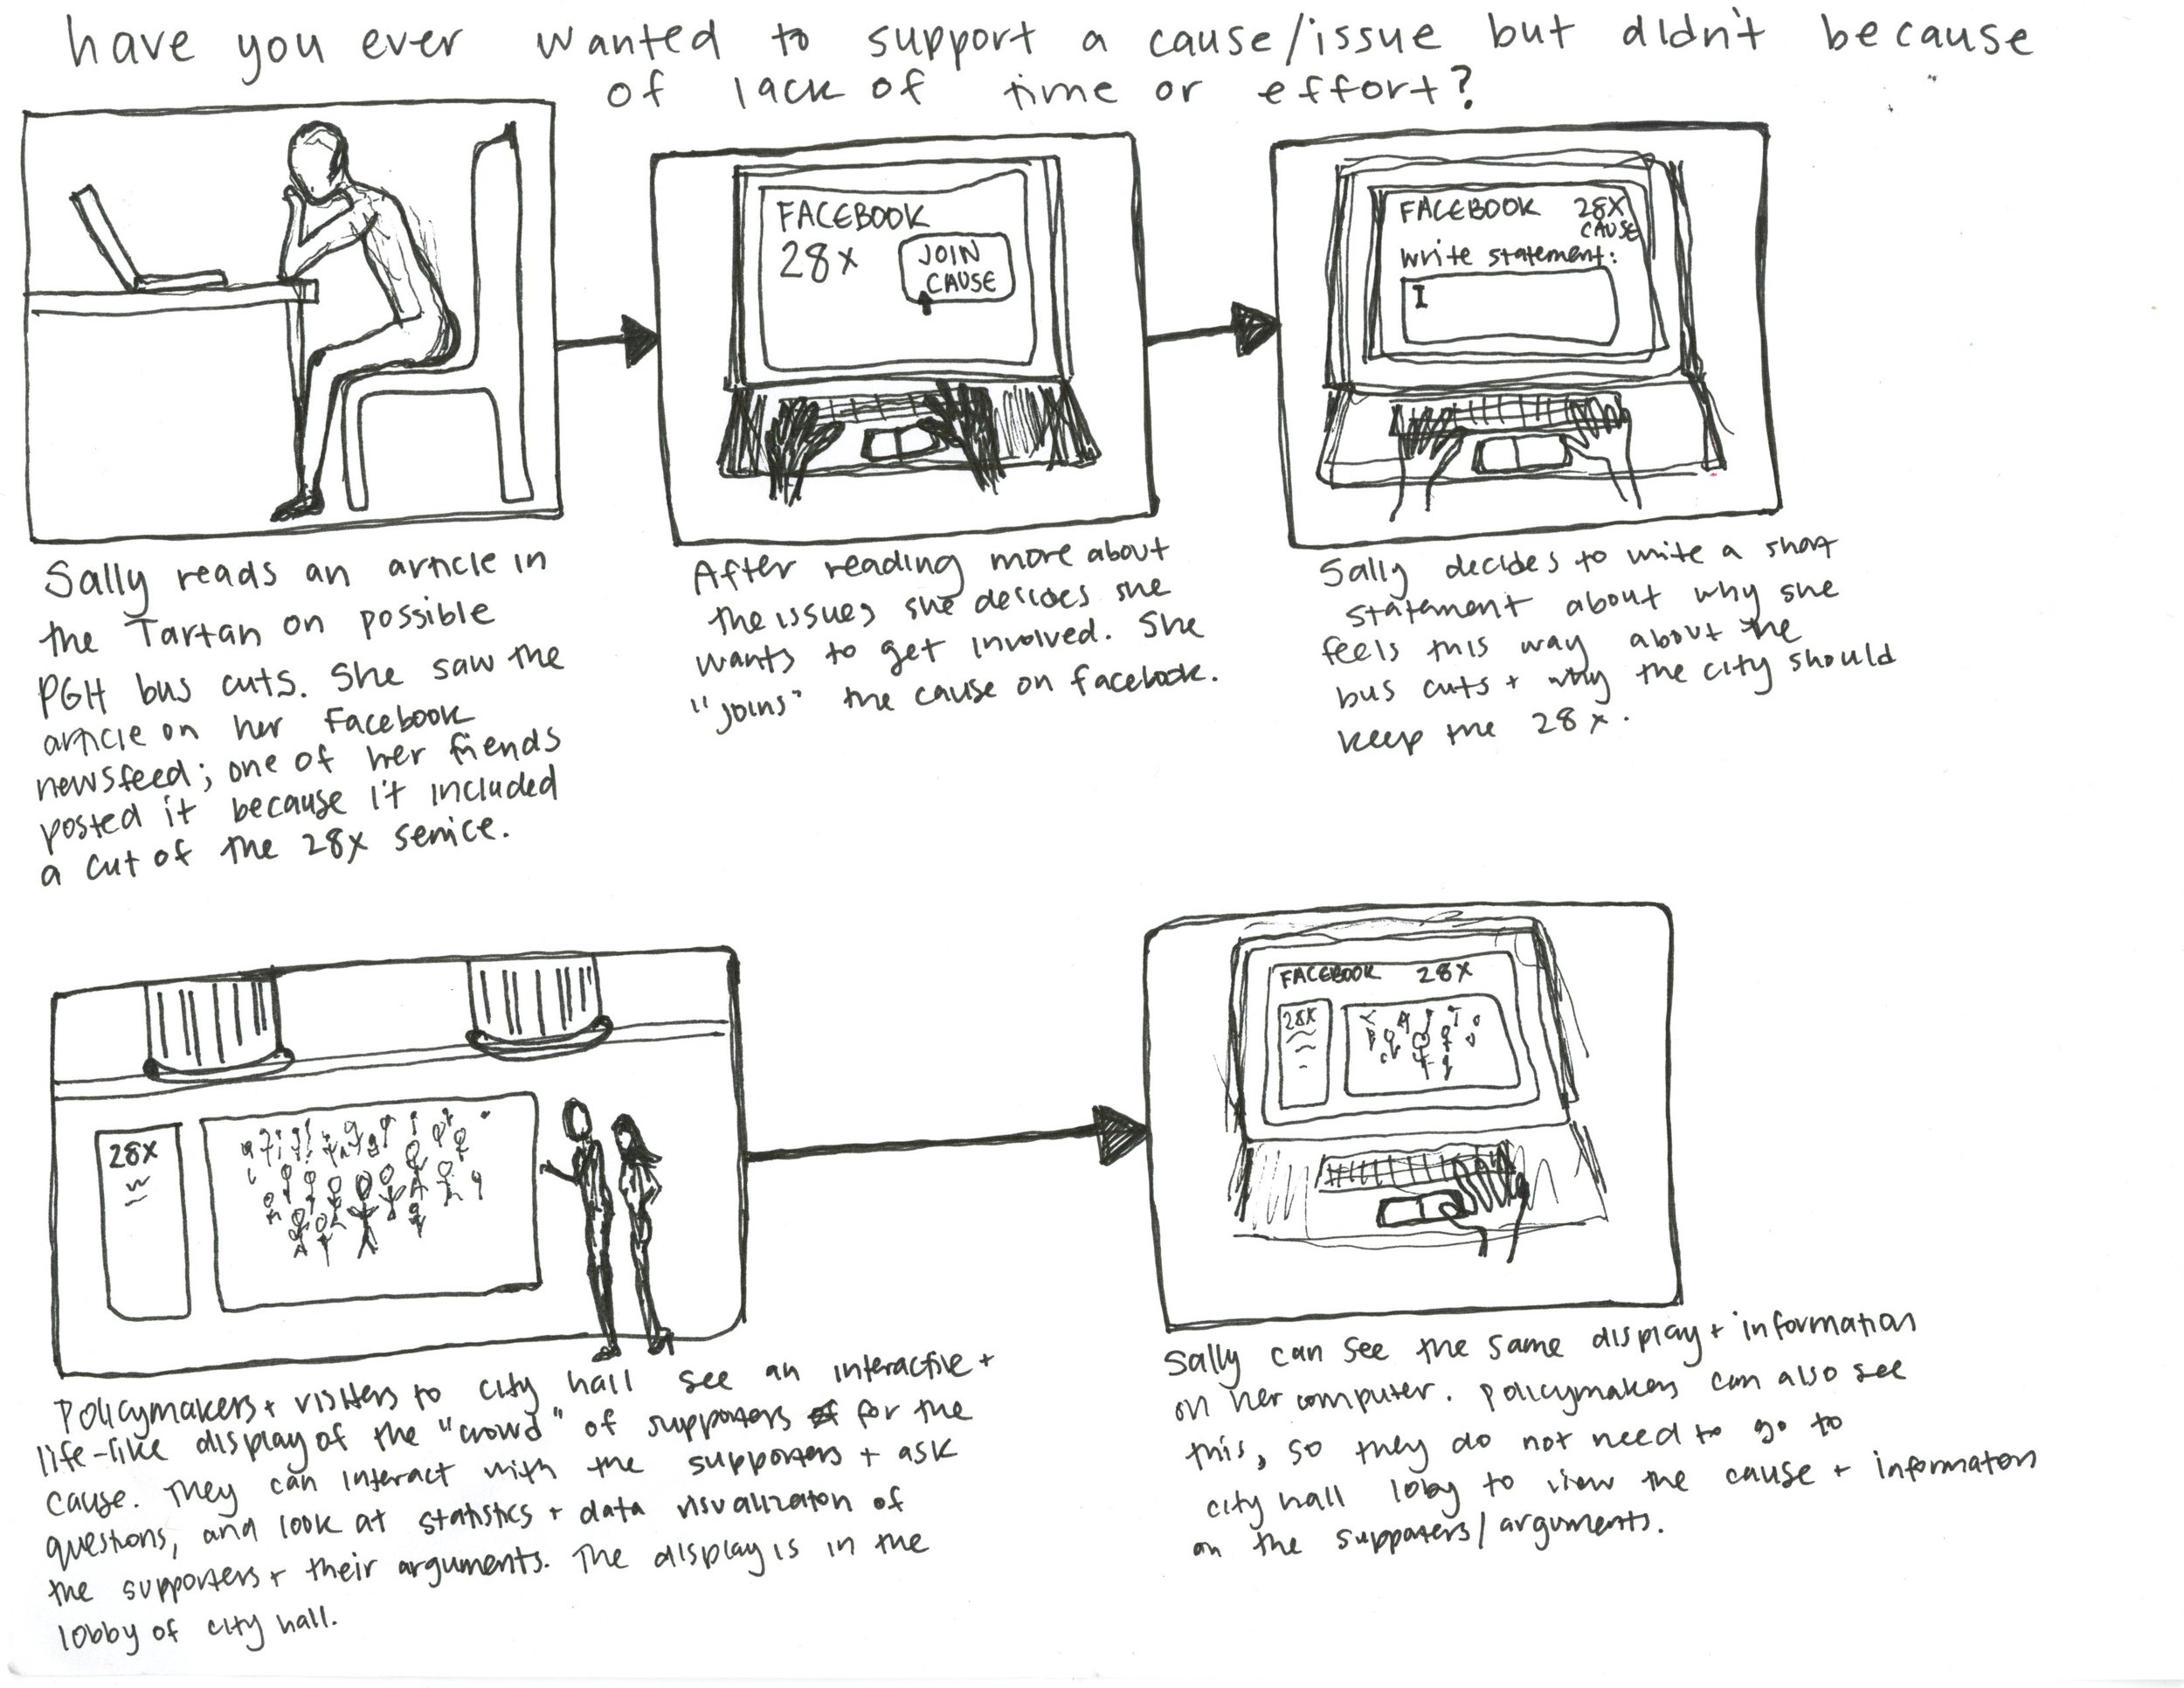 have you ever wanted to support a cause/issue but didn't because
of lack of time or effort?
FACEBOOK
28X
JOIN
CAUSE
FACEBOOK 28X
CAUSE
write statement:
I
Sally reads an article in
the Tartan on possible
PGH bus cuts. She saw the
article on her Facebook
newsfeed; one of her friends
posted it because it included
a cut of the 28X service.
After reading more about
the issues she decides she
wants to get involved. She
"joins" the cause on facebook.
Sally decides to write a short
statement about why she
feels this way about the
bus cuts + why the city should
keep the 28X.
28X
FACEBOOK 28X
28X
Policymakers + visitors to city hall see an interactive +
life-like display of the "crowd" of supporters for the
cause. They can interact with the supporters + ask
questions, and look at statistics + data visualization of
the supporters + their arguments. The display is in the
lobby of city hall.
Sally can see the same display + information
on her computer. Policymakers can also see
this, so they do not need to go to
city hall lobby to view the cause + information
on the supporters/arguments.